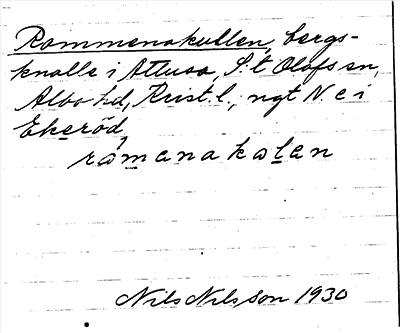 Rammenakullen, bergs-
knalle i Attusa, S:t Olofs sn,
Albo hd, Krist. l., ngt N. e i
Ekeröd,
råmenakolen
Nils Nilsson 1930